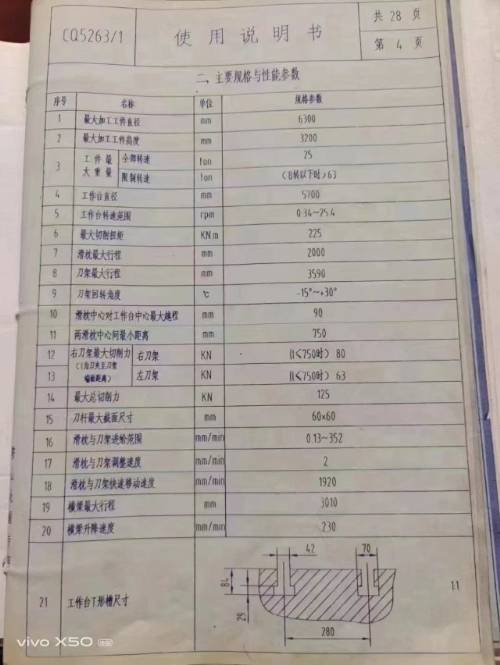 CQ5263/1
使用说明书
共 28 页
第 4 页
二、主要规格与性能参数
序号 名称 单位 规格参数
1 最大加工工件直径 mm 6300
2 最大加工工件高度 mm 3200
3 工件最大重量 全部转速 ton 25
限制转速 ton (8转以下时)63
4 工作台直径 mm 5700
5 工作台转速范围 rpm 0.34~25.4
6 最大切削扭矩 KN m 225
7 滑枕最大行程 mm 2000
8 刀架最大行程 mm 3590
9 刀架回转角度 ℃ -15°~+30°
10 滑枕中心对工作台中心最大越程 mm 90
11 两滑枕中心间最小距离 mm 750
12 右刀架最大切削力 右刀架 KN (l<750时) 80
13 左刀架 KN (l<750时) 63
14 最大总切削力 KN 125
15 刀杆最大截面尺寸 mm 60×60
16 滑枕与刀架进给范围 mm/min 0.13~352
17 滑枕与刀架调整速度 mm/min 2
18 滑枕与刀架快速移动速度 mm/min 1920
19 横梁最大行程 mm 3010
20 横梁升降速度 mm/min 230
21 工作台T形槽尺寸
42
70
84
29
280
1:1
vivo X50